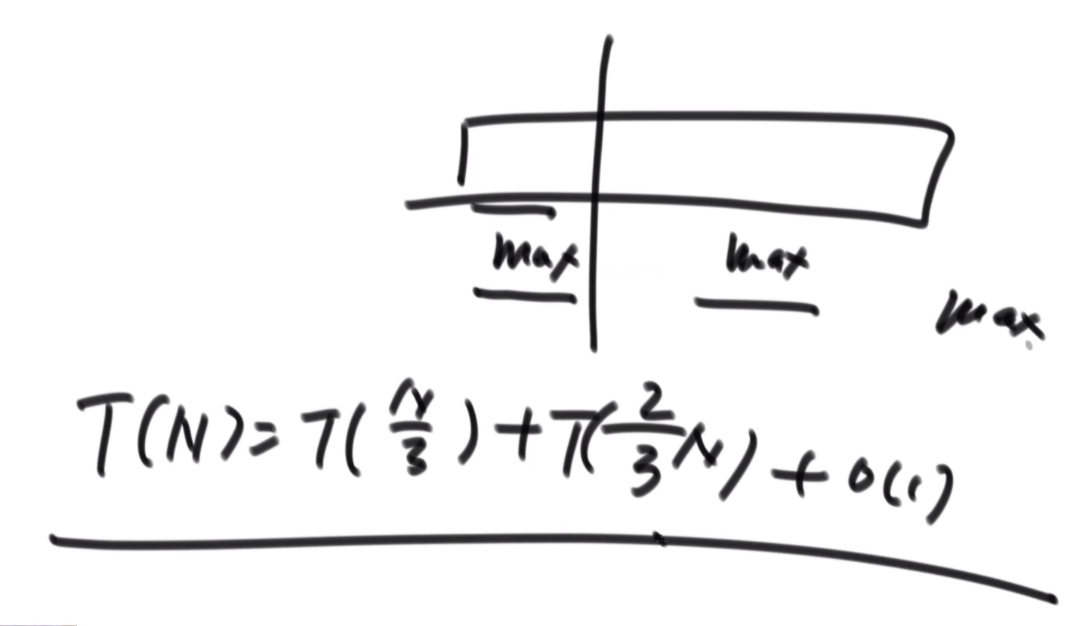 max max
max
T(N)=T(N/3)+T(2/3N)+O(1)